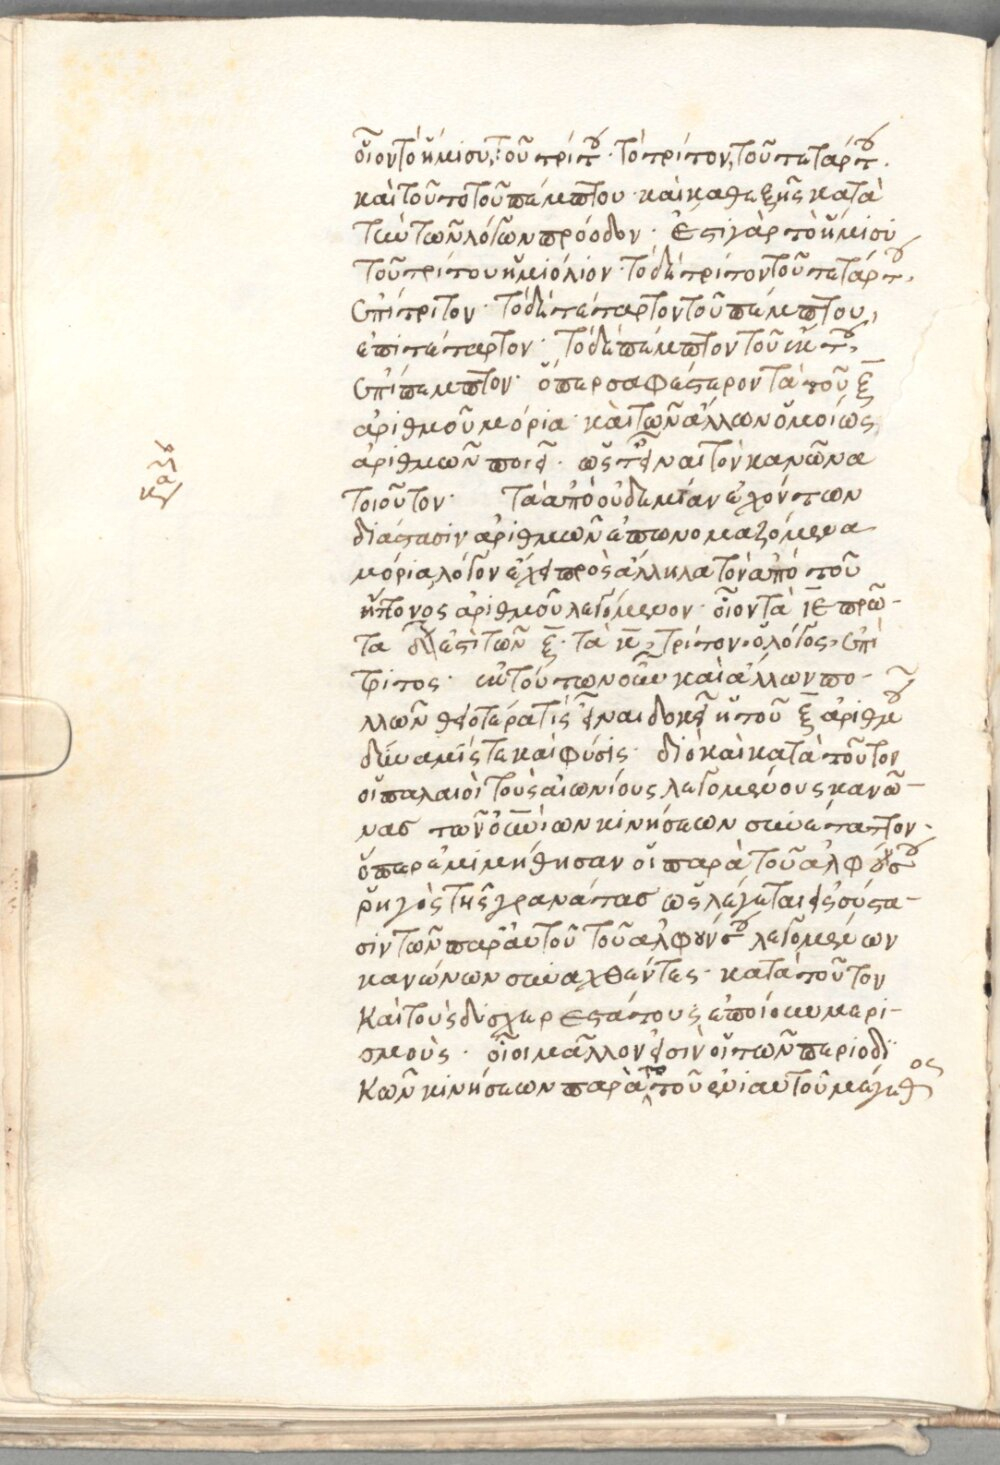 οἷον τὸ ἥμισυ, τοῦ τρίτου· τὸ τρίτον, τοῦ τετάρτου.
καὶ τοῦτο τοῦ πέμπτου· καὶ καθεξῆς κατὰ
τὴν τῶν λόγων πρόοδον· ἔστι γὰρ τὸ ἥμισυ
τοῦ τρίτου ἡμιόλιον· τὸ δὲ τρίτον τοῦ τετάρτου,
ἐπίτριτον· τὸ δὲ τέταρτον τοῦ πέμπτου,
ἐπιτέταρτον· τὸ δὲ πέμπτον τοῦ ἕκτου,
ἐπίπεμπτον· ὅπερ σαφέστερον τὰ τοῦ ξ̄
ἀριθμοῦ μόρια· καὶ τῶν ἄλλων ὁμοίως
ἀριθμῶν ποιεῖ· ὥστ' εἶναι τὸν κανῶνα
τοιοῦτον· τὰ ἀπὸ οὐδεμίαν ἐχόντων
διάστασιν ἀριθμῶν ἐπωνομαζόμενα
μόρια, λόγον ἔχει πρὸς ἄλληλα τὸν ἀπό τοῦ
ἥττονος ἀριθμοῦ λεγόμενον· οἷον τὰ ιε πρῶ-
τα ἐστὶ τῶν ξ̄· τὰ κ̄, τρίτον· ὁ λόγος, ἐπί
τριτος· ἐκ τούτων οὖν καὶ ἄλλων πο-
λλῶν θειοτέρα τὶς εἶναι δοκεῖ ἡ τοῦ ξ̄ ἀριθμοῦ
δύναμίς τε καὶ φύσις· διὸ καὶ κατὰ τοῦτον
οἱ παλαιοὶ τοὺς αἰωνίους λεγομένους κανῶ-
νας τῶν οὐνίων κινήσεων συνέταττον·
ὅπερ ἐμιμήθησαν οἱ παρὰ τοῦ ἀλφούνσου
ῥηγὸς τῆς γρανάτας ὡς λέγεται εἰς σύστα-
σιν τῶν παρ' αὐτοῦ τοῦ ἀλφούνσου λεγομένων
κανώνων συναχθέντες· κατὰ τοῦτον
καὶ τοὺς δυσχερεστάτους ἐποίουν μερι-
σμούς· οἷοι μᾶλλον εἰσὶν οἱ τῶν περιοδι
κῶν κινήσεων παρὰ τὸ τοῦ ἐνιαυτοῦ μέγεθος